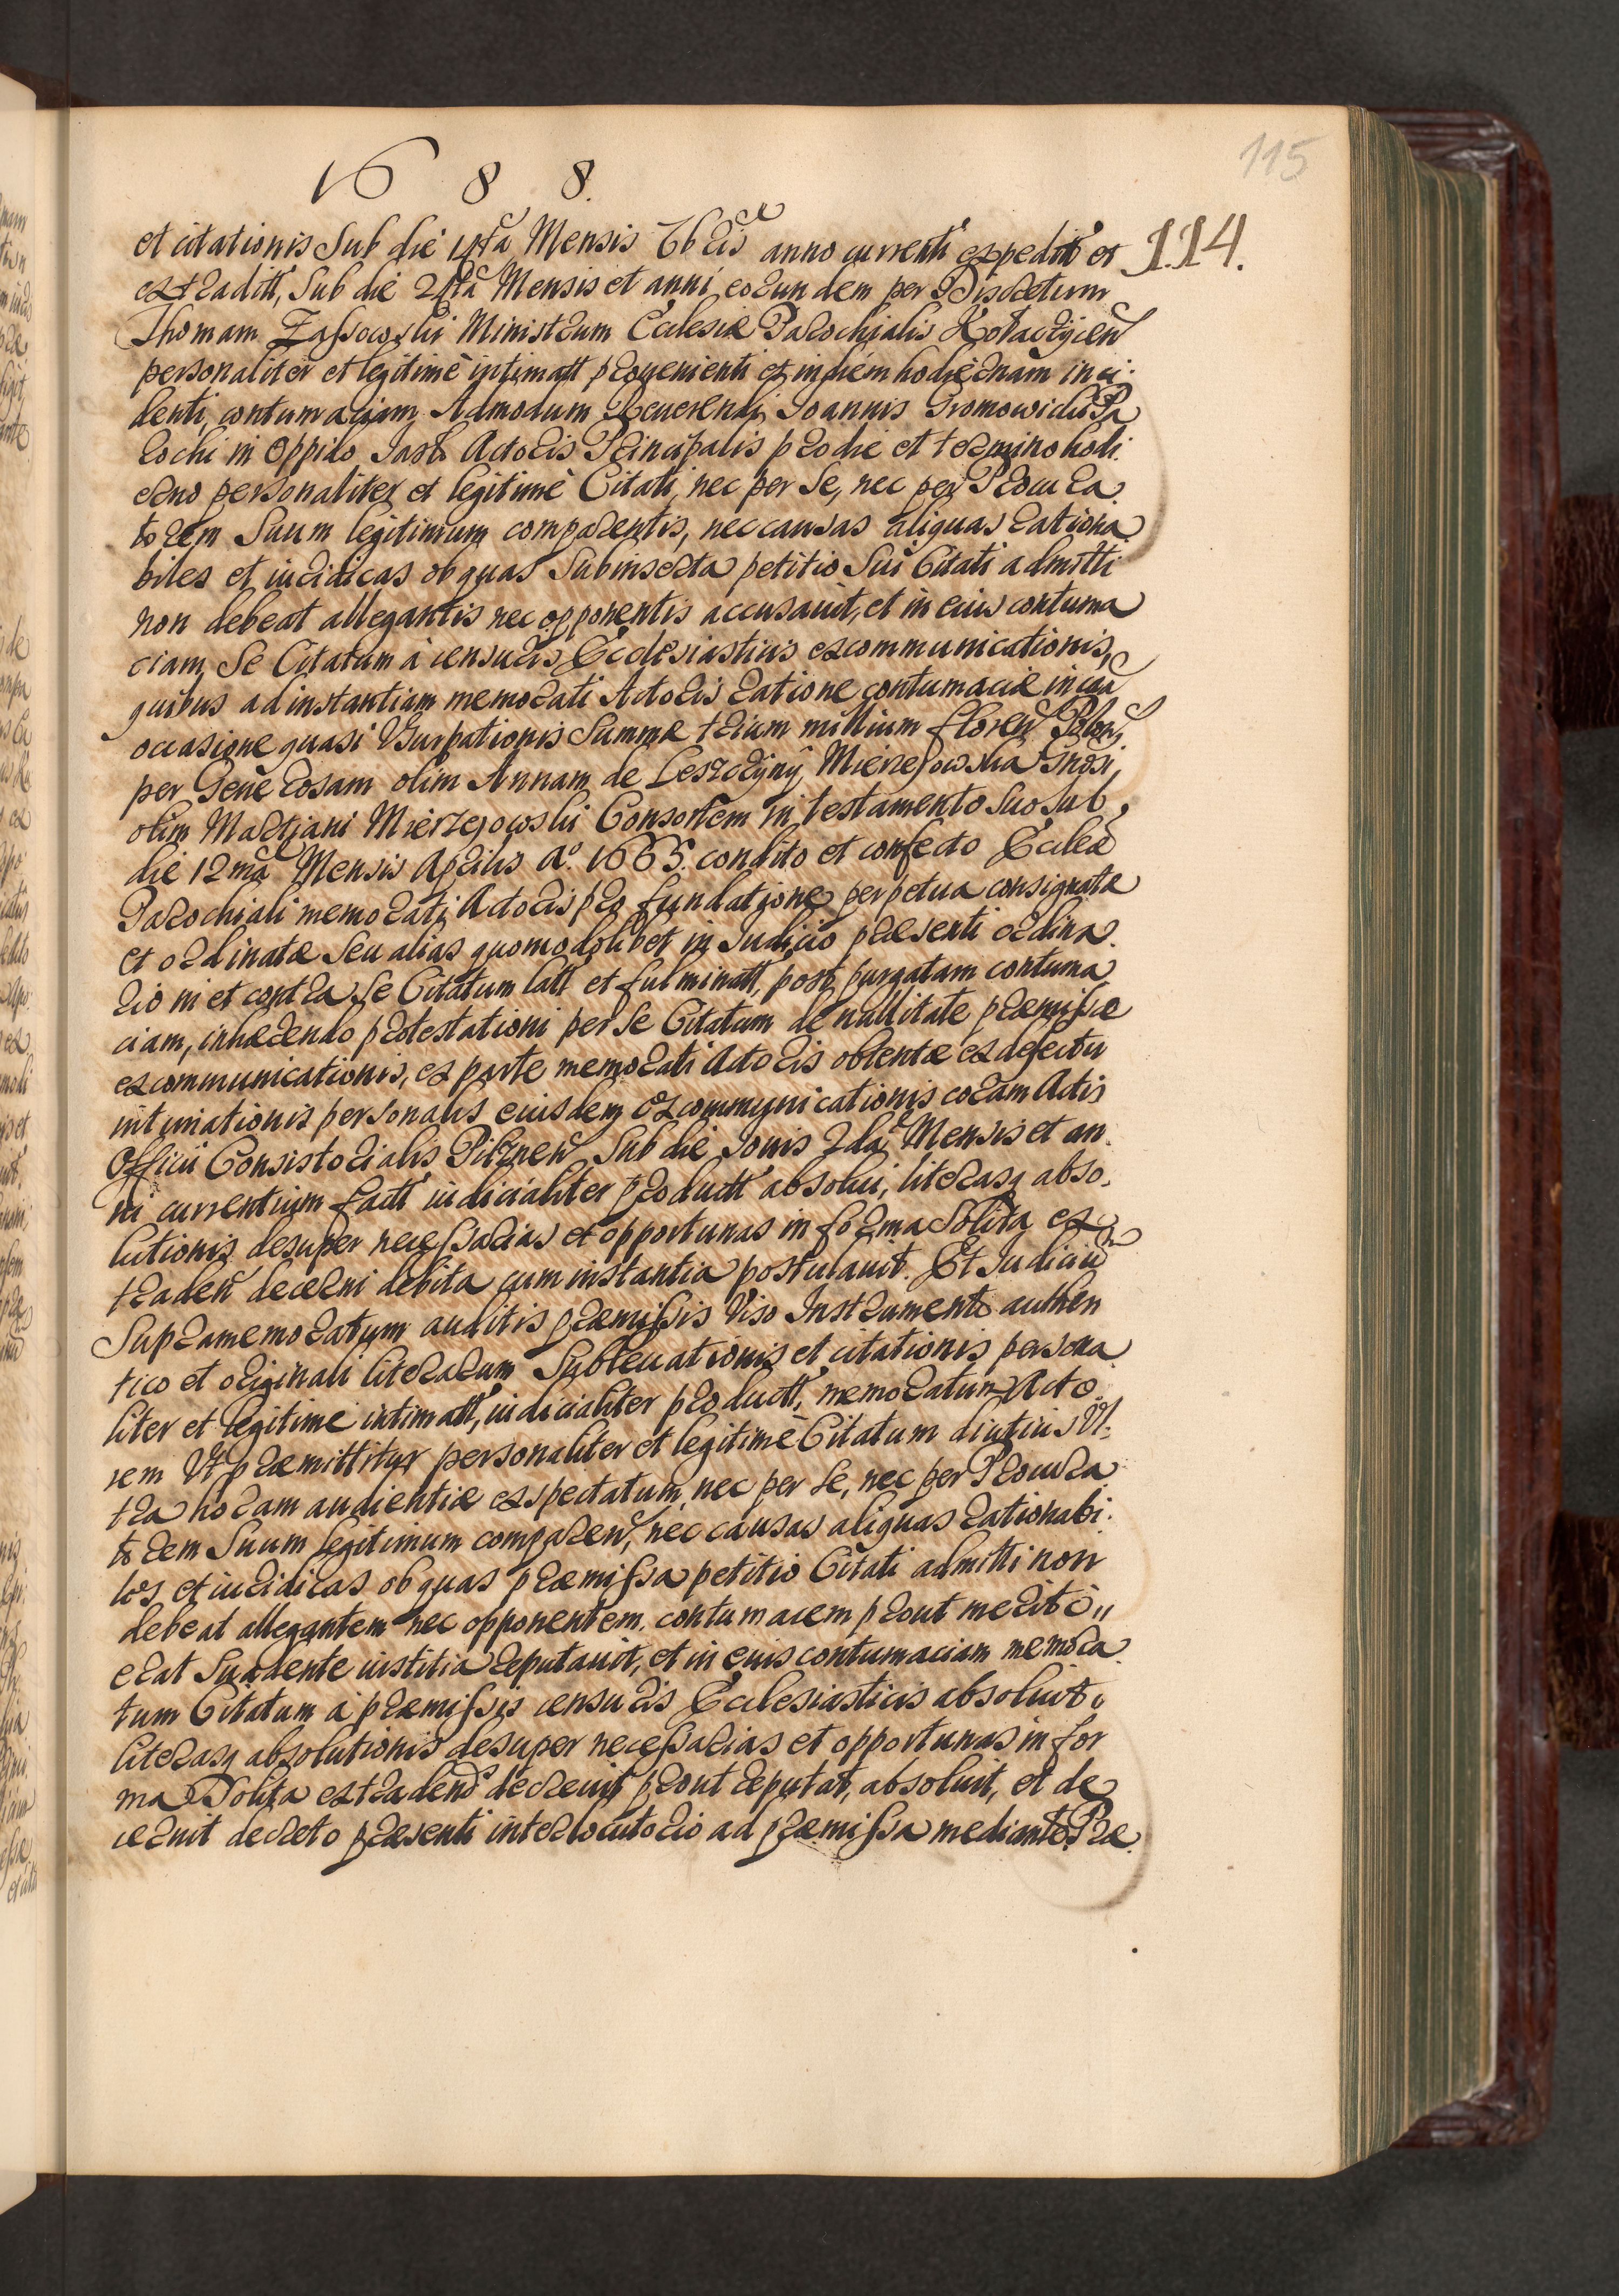 1688.
115
114.
et citationis Sub die 14ta Mensis 7bris anno currenti expeditt et
extraditt, Sub die 21ma Mensis et anni eorundem per Discretum
Thomam Zassowski Ministrum Ecclesiæ Parochialis Kołaczycen
personaliter et legitime intimatt provenienti et in diem hodiernam inci
denti, contumaciam Admodum Reverendi Joannis Gromowicki Pa
rochi in Oppido Jasło Actoris Principalis pro die et termino hodi
erno personaliter et legitime Citati, nec per Se, nec per Procura
torem Suum legitimum comparentis, nec causas aliquas rationa
biles et iuridicas ob quas Subinserta petitio Sui Citati admitti
non debeat allegantis nec opponentis accusavit, et in eius contuma
ciam Se Citatum à censuris Ecclesiasticis excommunicationis,
quibus ad instantiam memorati Actoris ratione contumaciæ in cau
occasione quasi Usurpationis Summæ trium millium floren Polon
per Generosam olim Annam de Leszczyny Mierzejowska Gnosi
olim Martiani Mierzejowski Consortem in testamento Suo Sub
die 12ma Mensis Aprilis Ao. 1665. condito et confecto Eccleæ
Parochiali memorati Actoris pro fundatione perpetua consignatæ
et ordinatæ Seu alias quomodolibet in Judicio præsenti ordina
rio in et contra Se Citatum latt et fulminatt, post purgatam contuma
ciam, inhærendo protestationi per Se Citatum de nullitate præmissæ
excommunicationis, ex parte memorati Actoris obtentæ ex defectu
intimationis personalis eiusdem excommunicationis coram Actis
Officii Consistorialis Pilznen Sub die Jovis 2da Mensis et an
ni currentium factt iudicialiter productt absolui, literasq abso
lutionis desuper necessarias et opportunas in forma Solita ex
traden decerni debita cum instantia postulavit. Et Judiciū
Supramemoratum auditis præmissis Viso Instrumento authen
tico et originali literarum Sublevationis et citationis persona
liter et legitime intimatt, iudicialiter productt, memoratum Acto
rem Ut præmittitur personaliter et legitime Citatum diutius Ul
tra horam audientiæ expectatum, nec per Se, nec per Procura
torem Suum legitimum comparen, nec causas aliquas rationabi
les et iuridicas ob quas præmissa petitio Citati admitti non
debeat allegantem nec opponentem contumacem prout merito
erat Suadente iustitia reputavit, et in eius contumaciam memora
tum Citatum à præmissis censuris Ecclesiasticis absoluit,
literasq absolutionis desuper necessarias et opportunas in for
ma Solita extradend decrevit prout reputat, absoluit, et de
cernit decreto præsenti interlocutorio ad præmissa mediante Præ